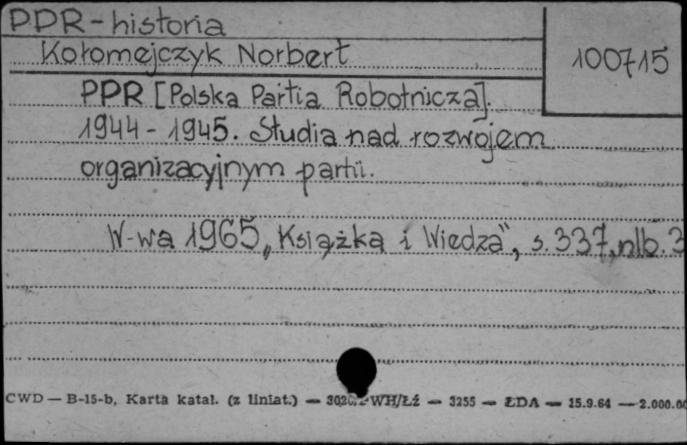 PPR - historia
Kołomejczyk Norbert
100715
PPR [Polska Partia Robotnicza].
1944 - 1945. Studia nad rozwojem
organizacyjnym partii.
W-wa 1965 „Książka i Wiedza”, s. 337, nlb. 3
CWD — B-15-b, Karta katal. (z liniat.) — WH/Łź — 3255 — ŁDA — 15.9.64 — 2.000.00